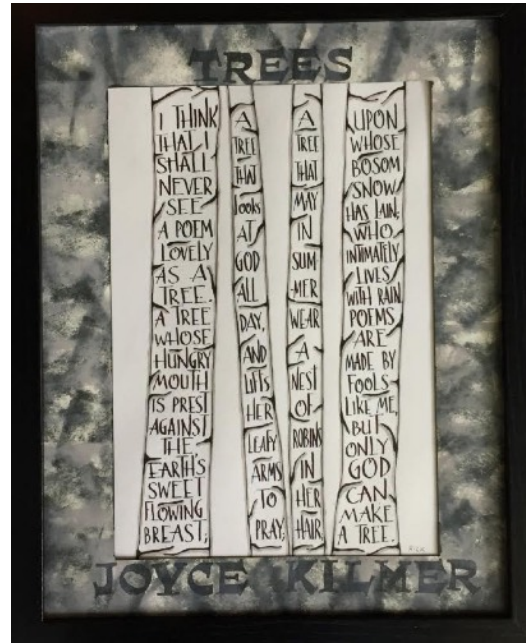 TREES
I THINK
THAT I
SHALL
NEVER
SEE
A POEM
LOVELY
AS A
TREE.
A TREE
WHOSE
HUNGRY
MOUTH
IS PREST
AGAINST
THE
EARTH'S
SWEET
FLOWING
BREAST;
A
TREE
THAT
looks
AT
GOD
ALL
DAY,
AND
LIFTS
HER
LEAFY
ARMS
TO
PRAY;
A
TREE
THAT
MAY
IN
SUM-
MER
WEAR
A
NEST
OF
ROBINS
IN
HER
HAIR
UPON
WHOSE
BOSOM
SNOW
HAS LAIN;
WHO
INTIMATELY
LIVES
WITH RAIN
POEMS
ARE
MADE BY
FOOLS
LIKE ME,
BUT
ONLY
GOD
CAN
MAKE
A TREE.
JOYCE KILMER